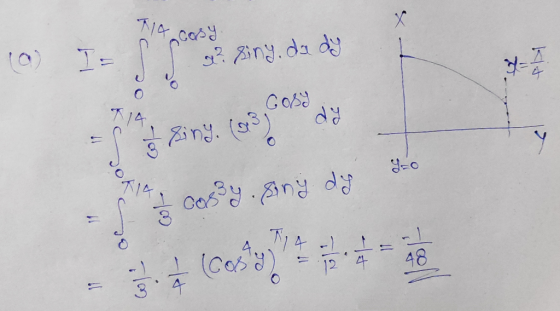 (a) I = ∫₀^{π/4} ∫₀^{cosy} x². siny. dx dy
= ∫₀^{π/4} 1/3 siny. (x³)₀^{cosy} dy
= ∫₀^{π/4} 1/3 cos³y. siny dy
= -1/3 . 1/4 (cos⁴y)₀^{π/4} = -1/12 . 1/4 = -1/48
X
y = π/4
Y
y=0